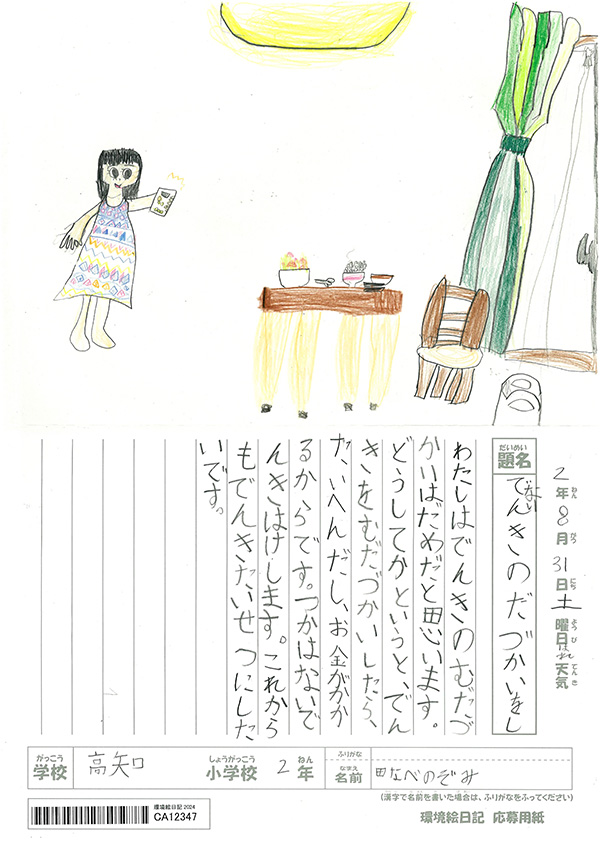 2年8月31日土曜日はれ天気
ねん がつ にち ようび てんき
だいめい
題名
でんきのだづかいをし
ない
わたしはでんきのむだづ
かいはだめだと思います。
どうしてかというと、でん
きをむだづかいしたら、
たいへんだし、お金がかか
るからです。つかはないで
んきはけします。これから
もでんきたいせつにした
いです。
がっこう しょうがっこう ねん ふりがな
学校 高知 小学校 2年
なまえ
名前 田なべのぞみ
(漢字で名前を書いた場合は、ふりがなをふってください)
環境絵日記 2024
CA12347
環境絵日記 応募用紙